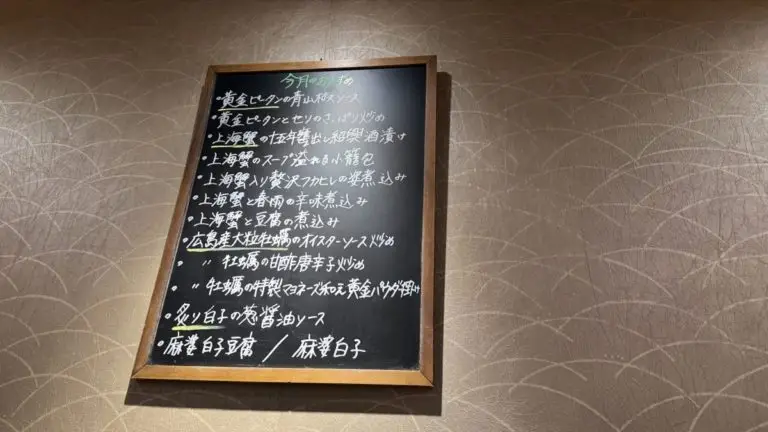 今月のおすすめ
・黄金ピータンの青山椒ソース
・黄金ピータンとセリのさっぱり炒め
・上海蟹の十五年甕出し紹興酒漬け
・上海蟹のスープ溢れる小籠包
・上海蟹入り贅沢フカヒレの姿煮込み
・上海蟹と春雨の辛味煮込み
・上海蟹と豆腐の煮込み
・広島産大粒牡蠣のオイスターソース炒め
・〃 牡蠣の甘酢唐辛子炒め
・〃 牡蠣の特製マヨネーズ和え黄金パウダー掛け
・炙り白子の葱醤油ソース
・麻婆白子豆腐 / 麻婆白子